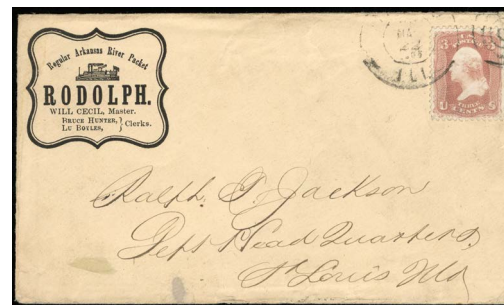 Regular Arkansas River Packet
RODOLPH.
WILL CECIL, Master.
BRUCE HUNTER, } Clerks.
LU BOYLES,
3 3
U S
THREE CENTS
Ralph. J. Jackson
Dept Head Quarters,
St Louis Mo